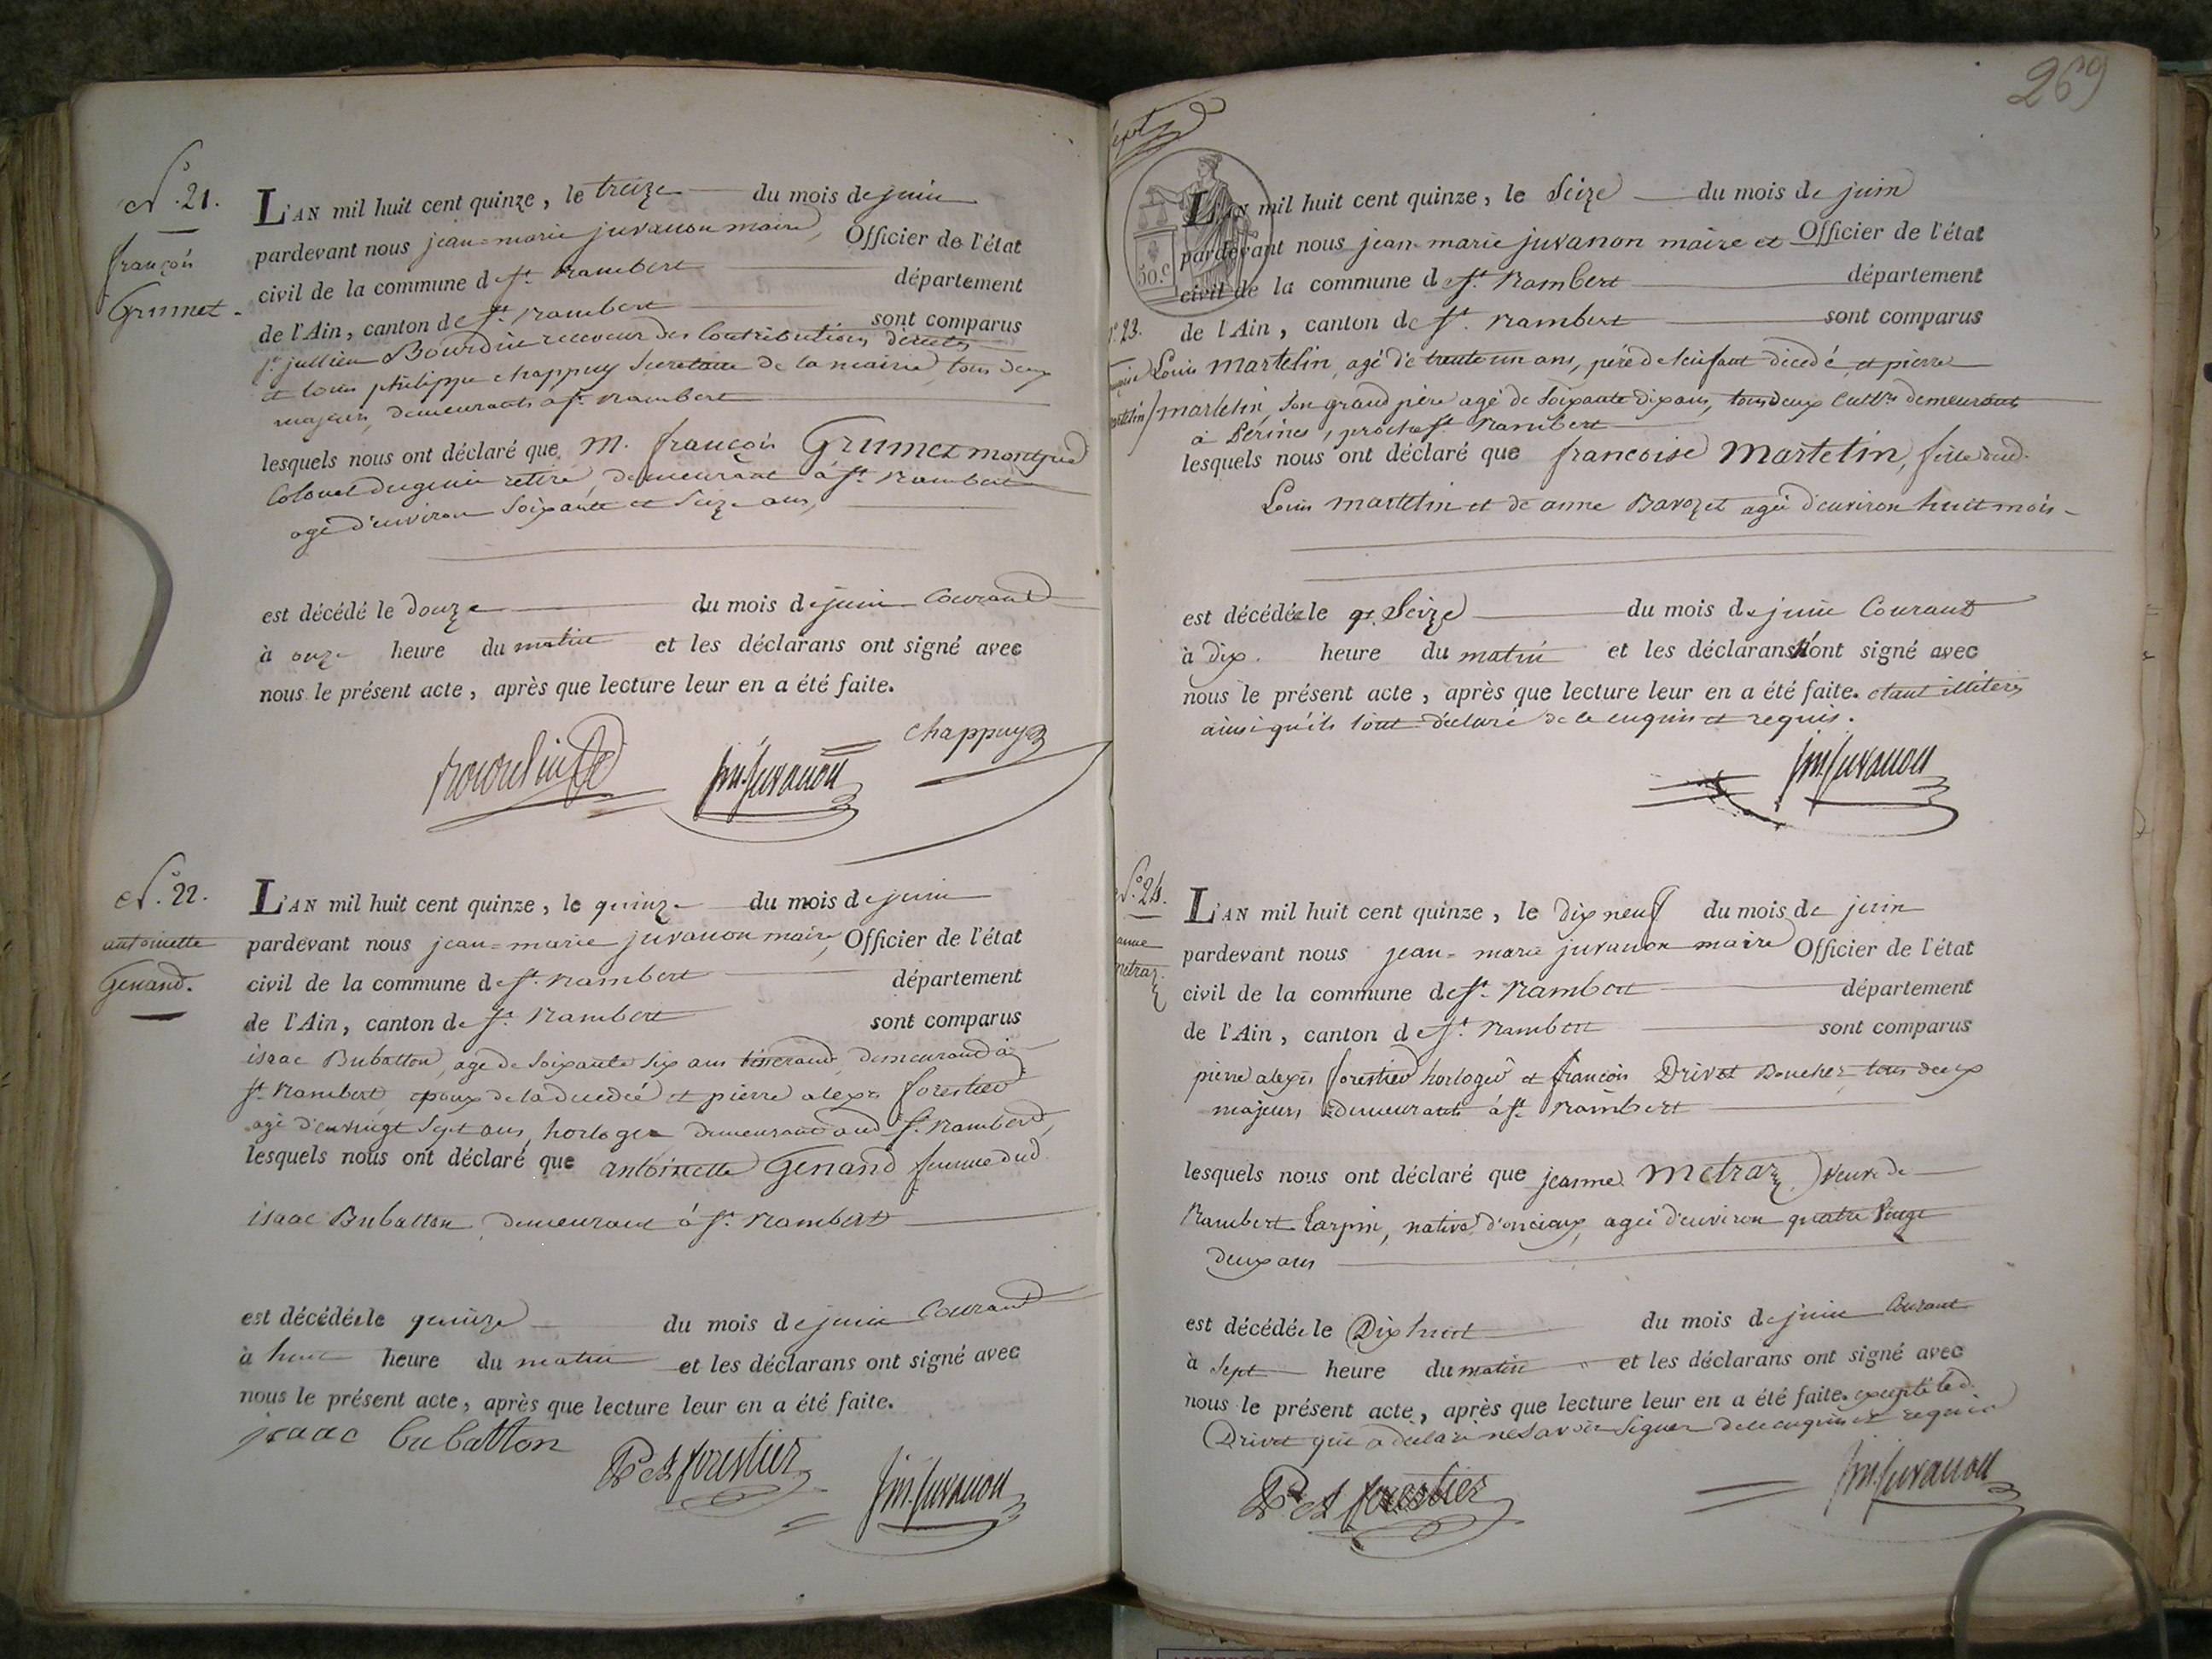 N.º 21.
françois
Grumet.
L'AN mil huit cent quinze, le treize du mois de juin
pardevant nous jean=marie juvanon maire, Officier de l'état
civil de la commune de St. Rambert département
de l'Ain, canton de St. Rambert sont comparus
Sr. jullien Bourdin receveur des Contributions directes
et louis philippe chappuy Secretaire de la mairie, tous deux
majeurs, demeurants à St. Rambert
lesquels nous ont déclaré que M. françois Grumet montpied
Colonel du genie retiré, demeurant à St. Rambert
agé d'environ Soixante et Seize ans,
est décédé le douze du mois de juin Courant
à onze heure du matin et les déclarans ont signé avec
nous le présent acte, après que lecture leur en a été faite.
chappuy
Bourdin
jm. juvanon
N.º 22.
antoinette
Genand.
L'AN mil huit cent quinze, le quinze du mois de juin
pardevant nous jean=marie juvanon maire, Officier de l'état
civil de la commune de St. Rambert département
de l'Ain, canton de St. Rambert sont comparus
isaac Bubatton, agé de Soixante Six ans tisserand, demeurand à
St. Rambert, epoux de la decedée et pierre alexis forestier
agé d'envingt Sept ans, horloger demeurant aud. St. Rambert,
lesquels nous ont déclaré que antoinette Genand femme dud.
isaac Bubatton, demeurant à St. Rambert
est décédée le quinze du mois de juin Courant
à huit heure du matin et les déclarans ont signé avec
nous le présent acte, après que lecture leur en a été faite.
isaac bubatton
P. A. forestier
jm. juvanon
269
Sept
50.C
L'AN mil huit cent quinze, le Seize du mois de juin
pardevant nous jean-marie juvanon maire et Officier de l'état
civil de la commune de St. Rambert département
de l'Ain, canton de St. Rambert sont comparus
Nº. 23.
Louis Martelin, agé de trente un ans, père de l'enfant décedé, et pierre
martelin, Son grand père agé de Soixante dix ans, tous deux Cultrs. demeurants
à Serines, proche St. Rambert
lesquels nous ont déclaré que francoise Martelin, fille dud.
Louis martelin et de anne Bavozet agée d'environ huit mois
est décédée le qe. Seize du mois de juin Courant
à dix heure du matin et les déclarans n'ont signé avec
nous le présent acte, après que lecture leur en a été faite. etant illiterés
ainsi qu'ils l'ont déclaré de ce enquis et requis.
jm. juvanon
N.º 24.
jeanne
metraz.
L'AN mil huit cent quinze, le dix neuf du mois de juin
pardevant nous jean-marie juvanon maire Officier de l'état
civil de la commune de St. Rambert département
de l'Ain, canton de St. Rambert sont comparus
pierre alexis forestier horloger et françois Drivet Boucher tous deux
majeurs demeurants à St. Rambert
lesquels nous ont déclaré que jeanne Metraz Veuve de
Rambert Tarpin, native d'onciaux, agée d'environ quatre Vingt
deux ans
est décédée le Dix huit du mois de juin Courant
à Sept heure du matin et les déclarans ont signé avec
nous le présent acte, après que lecture leur en a été faite. excepté led.
Drivet qui a déclaré ne Savoir Signer de ce enquis et requis
P. A. forestier
jm. juvanon